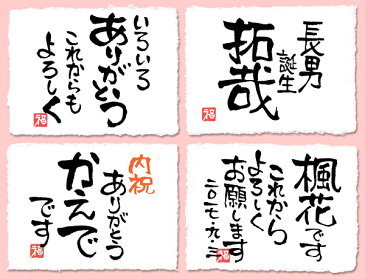 いろいろ
ありがとう
これからも
よろしく
福
長男
誕生
拓哉
福
内祝
ありがとう
かえで
です
福
楓花です
これから
よろしく
お願します
二〇一七・九・三
福